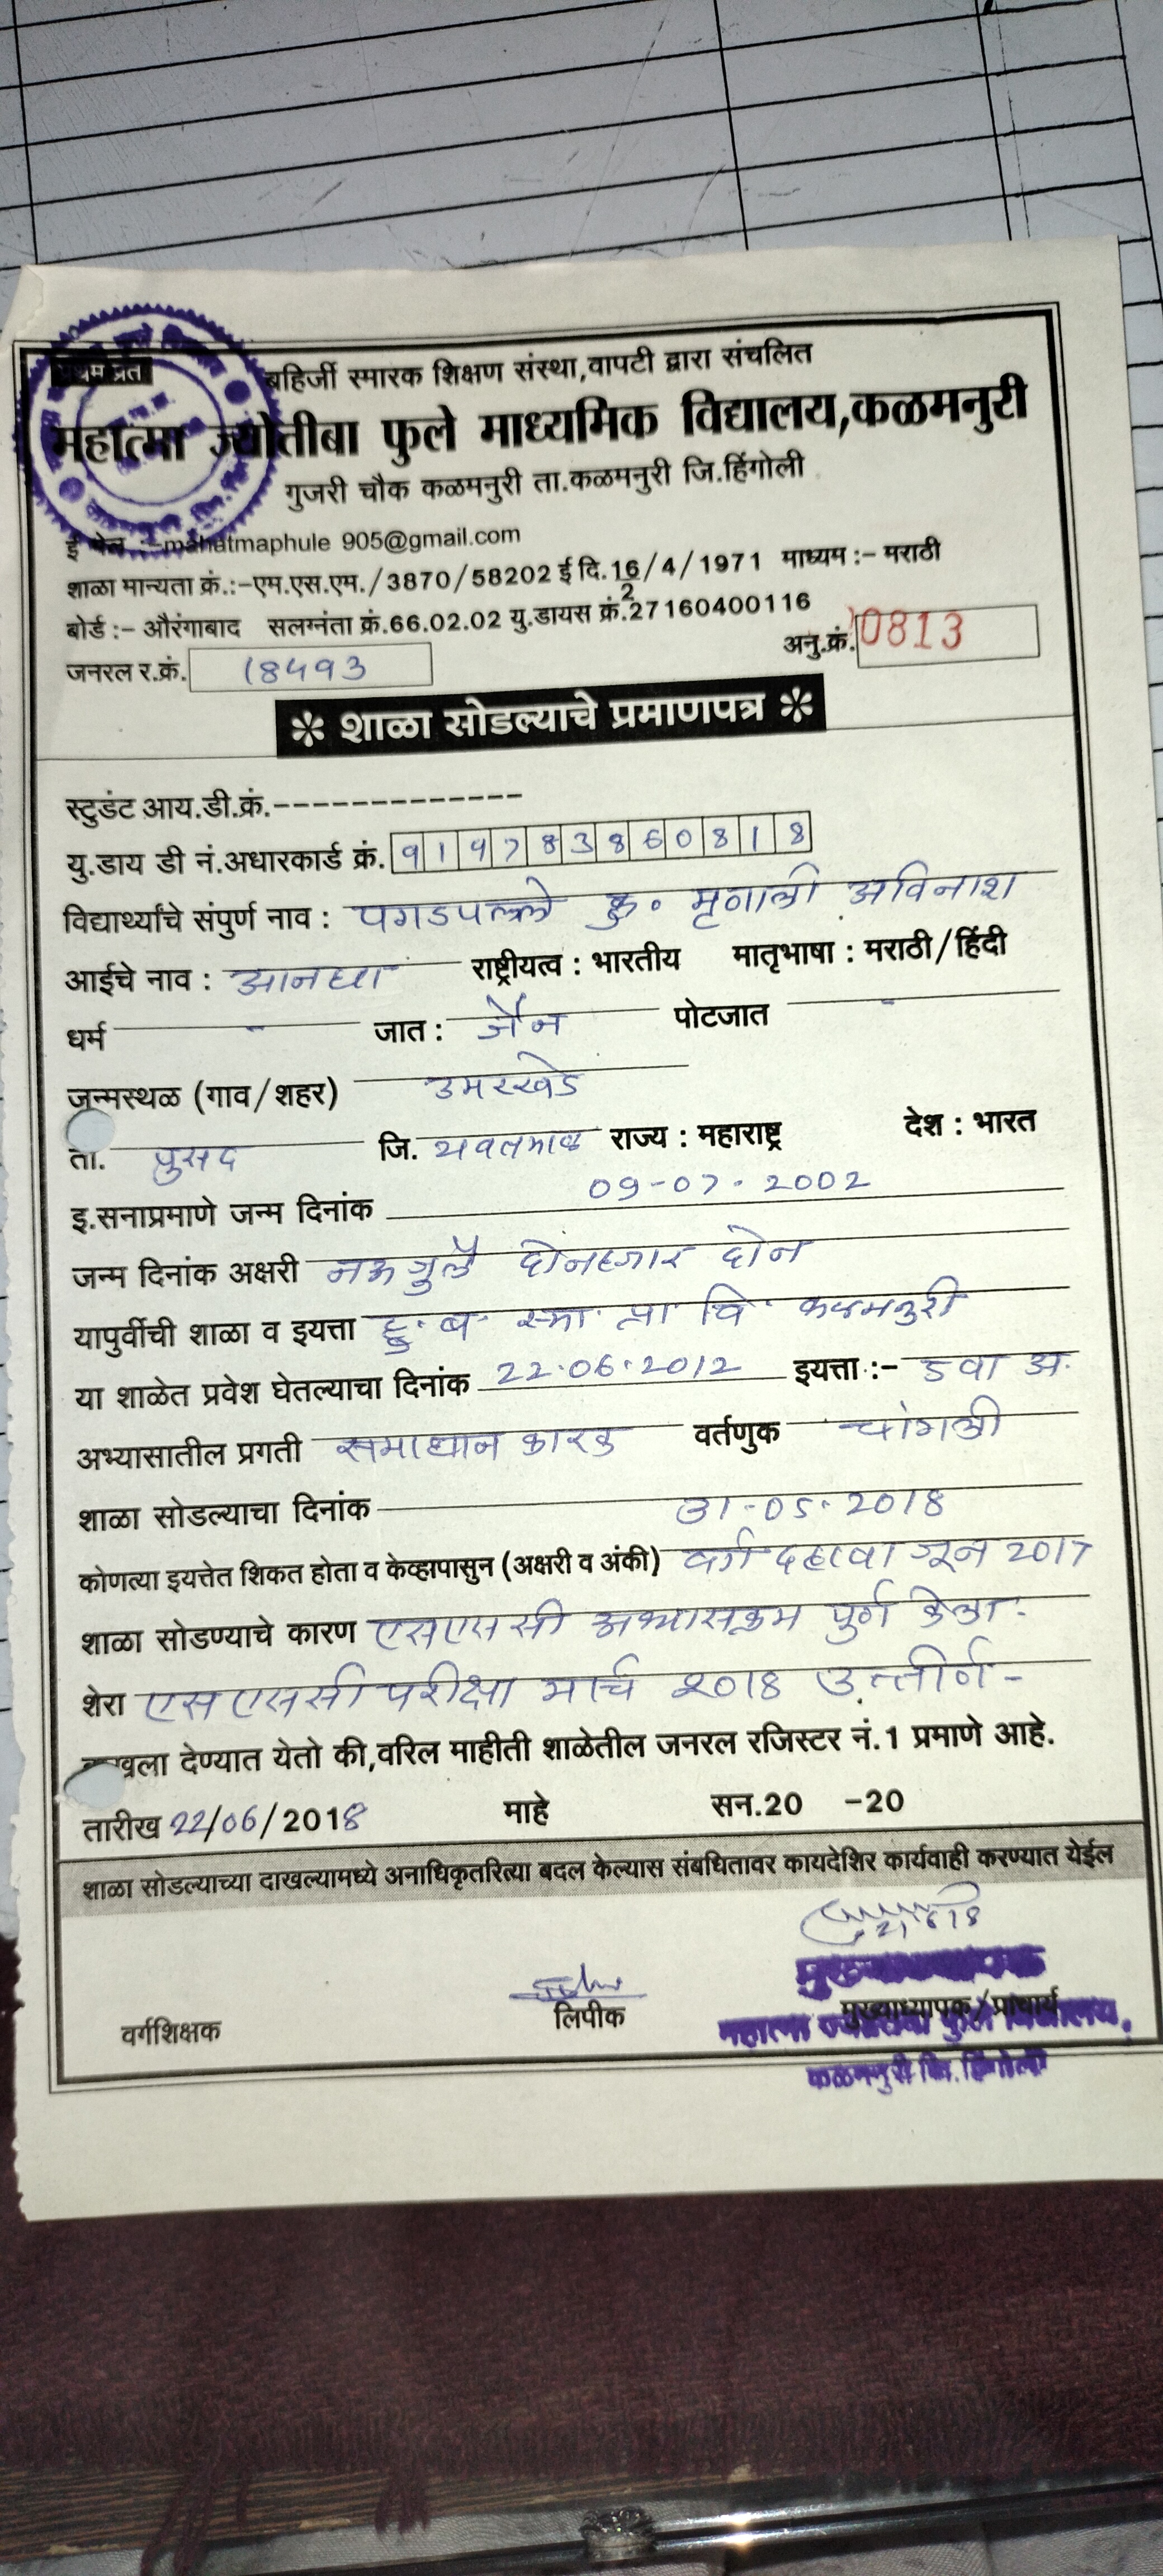 प्रथम प्रत
बहिर्जी स्मारक शिक्षण संस्था,वापटी द्वारा संचलित
महात्मा ज्योतीबा फुले माध्यमिक विद्यालय,कळमनुरी
गुजरी चौक कळमनुरी ता.कळमनुरी जि.हिंगोली
ई मेल :-mahatmaphule 905@gmail.com
शाळा मान्यता क्रं.:-एम.एस.एम./3870/58202 ई दि.16/4/1971 माध्यम :- मराठी
2
बोर्ड :- औरंगाबाद सलग्नंता क्रं.66.02.02 यु.डायस क्रं.27160400116
जनरल र.क्रं. 18493 अनु.क्रं. 0813
* शाळा सोडल्याचे प्रमाणपत्र *
स्टुडंट आय.डी.क्रं.-------------
यु.डाय डी नं.अधारकार्ड क्रं. 914783860818
विद्यार्थ्यांचे संपुर्ण नाव : पगडपल्ले कु. मृणाली अविनाश
आईचे नाव : आनघा राष्ट्रीयत्व : भारतीय मातृभाषा : मराठी/हिंदी
धर्म - जात : जैन पोटजात -
जन्मस्थळ (गाव/शहर) उमरखेड
ता. पुसद जि. यवतमाळ राज्य : महाराष्ट्र देश : भारत
इ.सनाप्रमाणे जन्म दिनांक 09-07-2002
जन्म दिनांक अक्षरी नऊ जुलै दोनहजार दोन
यापुर्वीची शाळा व इयत्ता हु. ब. स्मा. प्रा वि. कळमनुरी
या शाळेत प्रवेश घेतल्याचा दिनांक 22.06.2012 इयत्ता :- 5वा अ.
अभ्यासातील प्रगती समाधान कारक वर्तणुक चांगली
शाळा सोडल्याचा दिनांक 31-05-2018
कोणत्या इयत्तेत शिकत होता व केव्हापासुन (अक्षरी व अंकी) वर्ग दहावा जून 2017
शाळा सोडण्याचे कारण एसएससी अभ्यासक्रम पुर्ण केला.
शेरा एसएससी परीक्षा मार्च 2018 उत्तीर्ण-
दाखला देण्यात येतो की,वरिल माहीती शाळेतील जनरल रजिस्टर नं.1 प्रमाणे आहे.
तारीख 22/06/2018 माहे सन.20 -20
शाळा सोडल्याच्या दाखल्यामध्ये अनाधिकृतरित्या बदल केल्यास संबधितावर कायदेशिर कार्यवाही करण्यात येईल
वर्गशिक्षक लिपीक मुख्याध्यापक/प्राचार्य
मुख्याध्यापक
महात्मा ज्योतीबा फुले विद्यालय,
कळमनुरी जि. हिंगोली